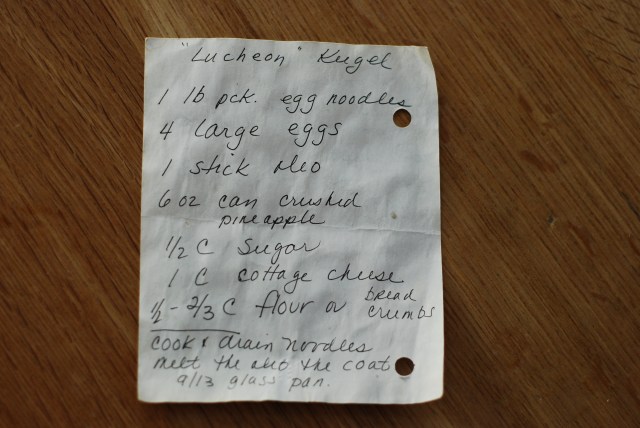 "Lucheon" Kugel
1 lb pck. egg noodles
4 large eggs
1 stick oleo
6 oz can crushed
pineapple
1/2 C Sugar
1 C cottage cheese
1/2 - 2/3 C flour or bread
crumbs
cook & drain noodles
melt the oleo the coat
9/13 glass pan.